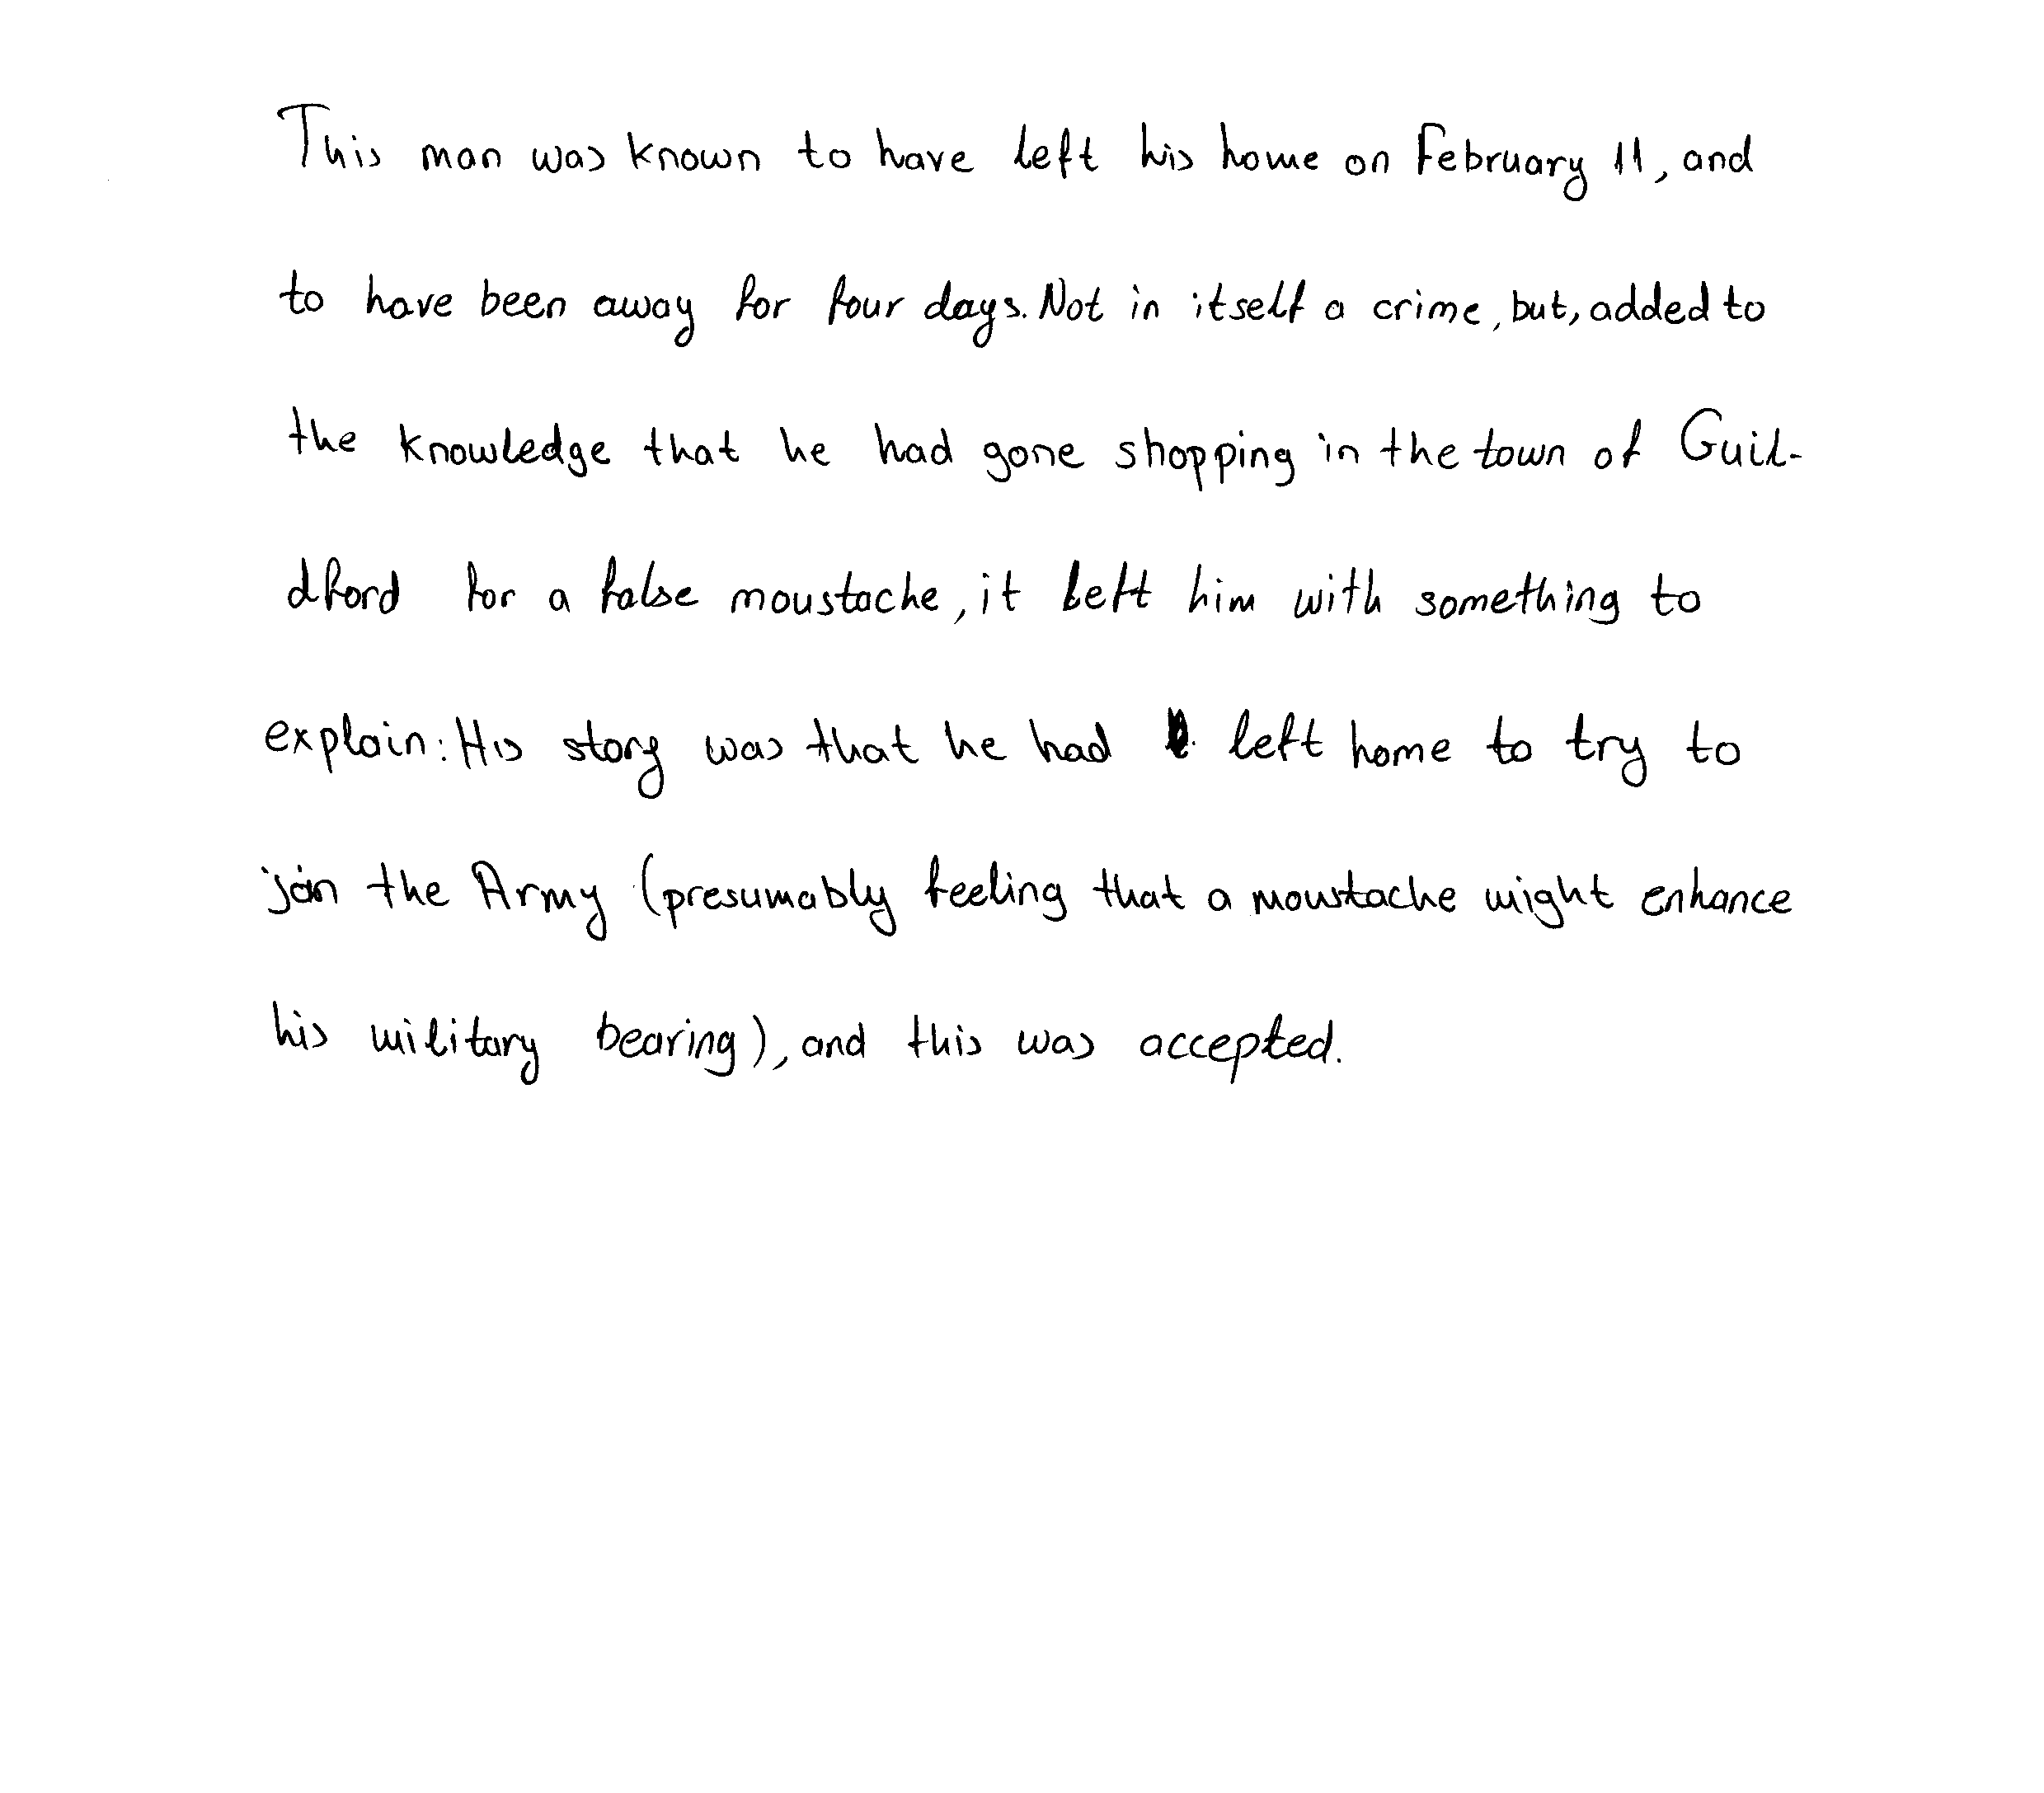 This man was known to have left his home on February 11, and
to have been away for four days. Not in itself a crime, but, added to
the knowledge that he had gone shopping in the town of Guil-
dford for a false moustache, it left him with something to
explain: His story was that he had left home to try to
join the Army (presumably feeling that a moustache might enhance
his military bearing), and this was accepted.